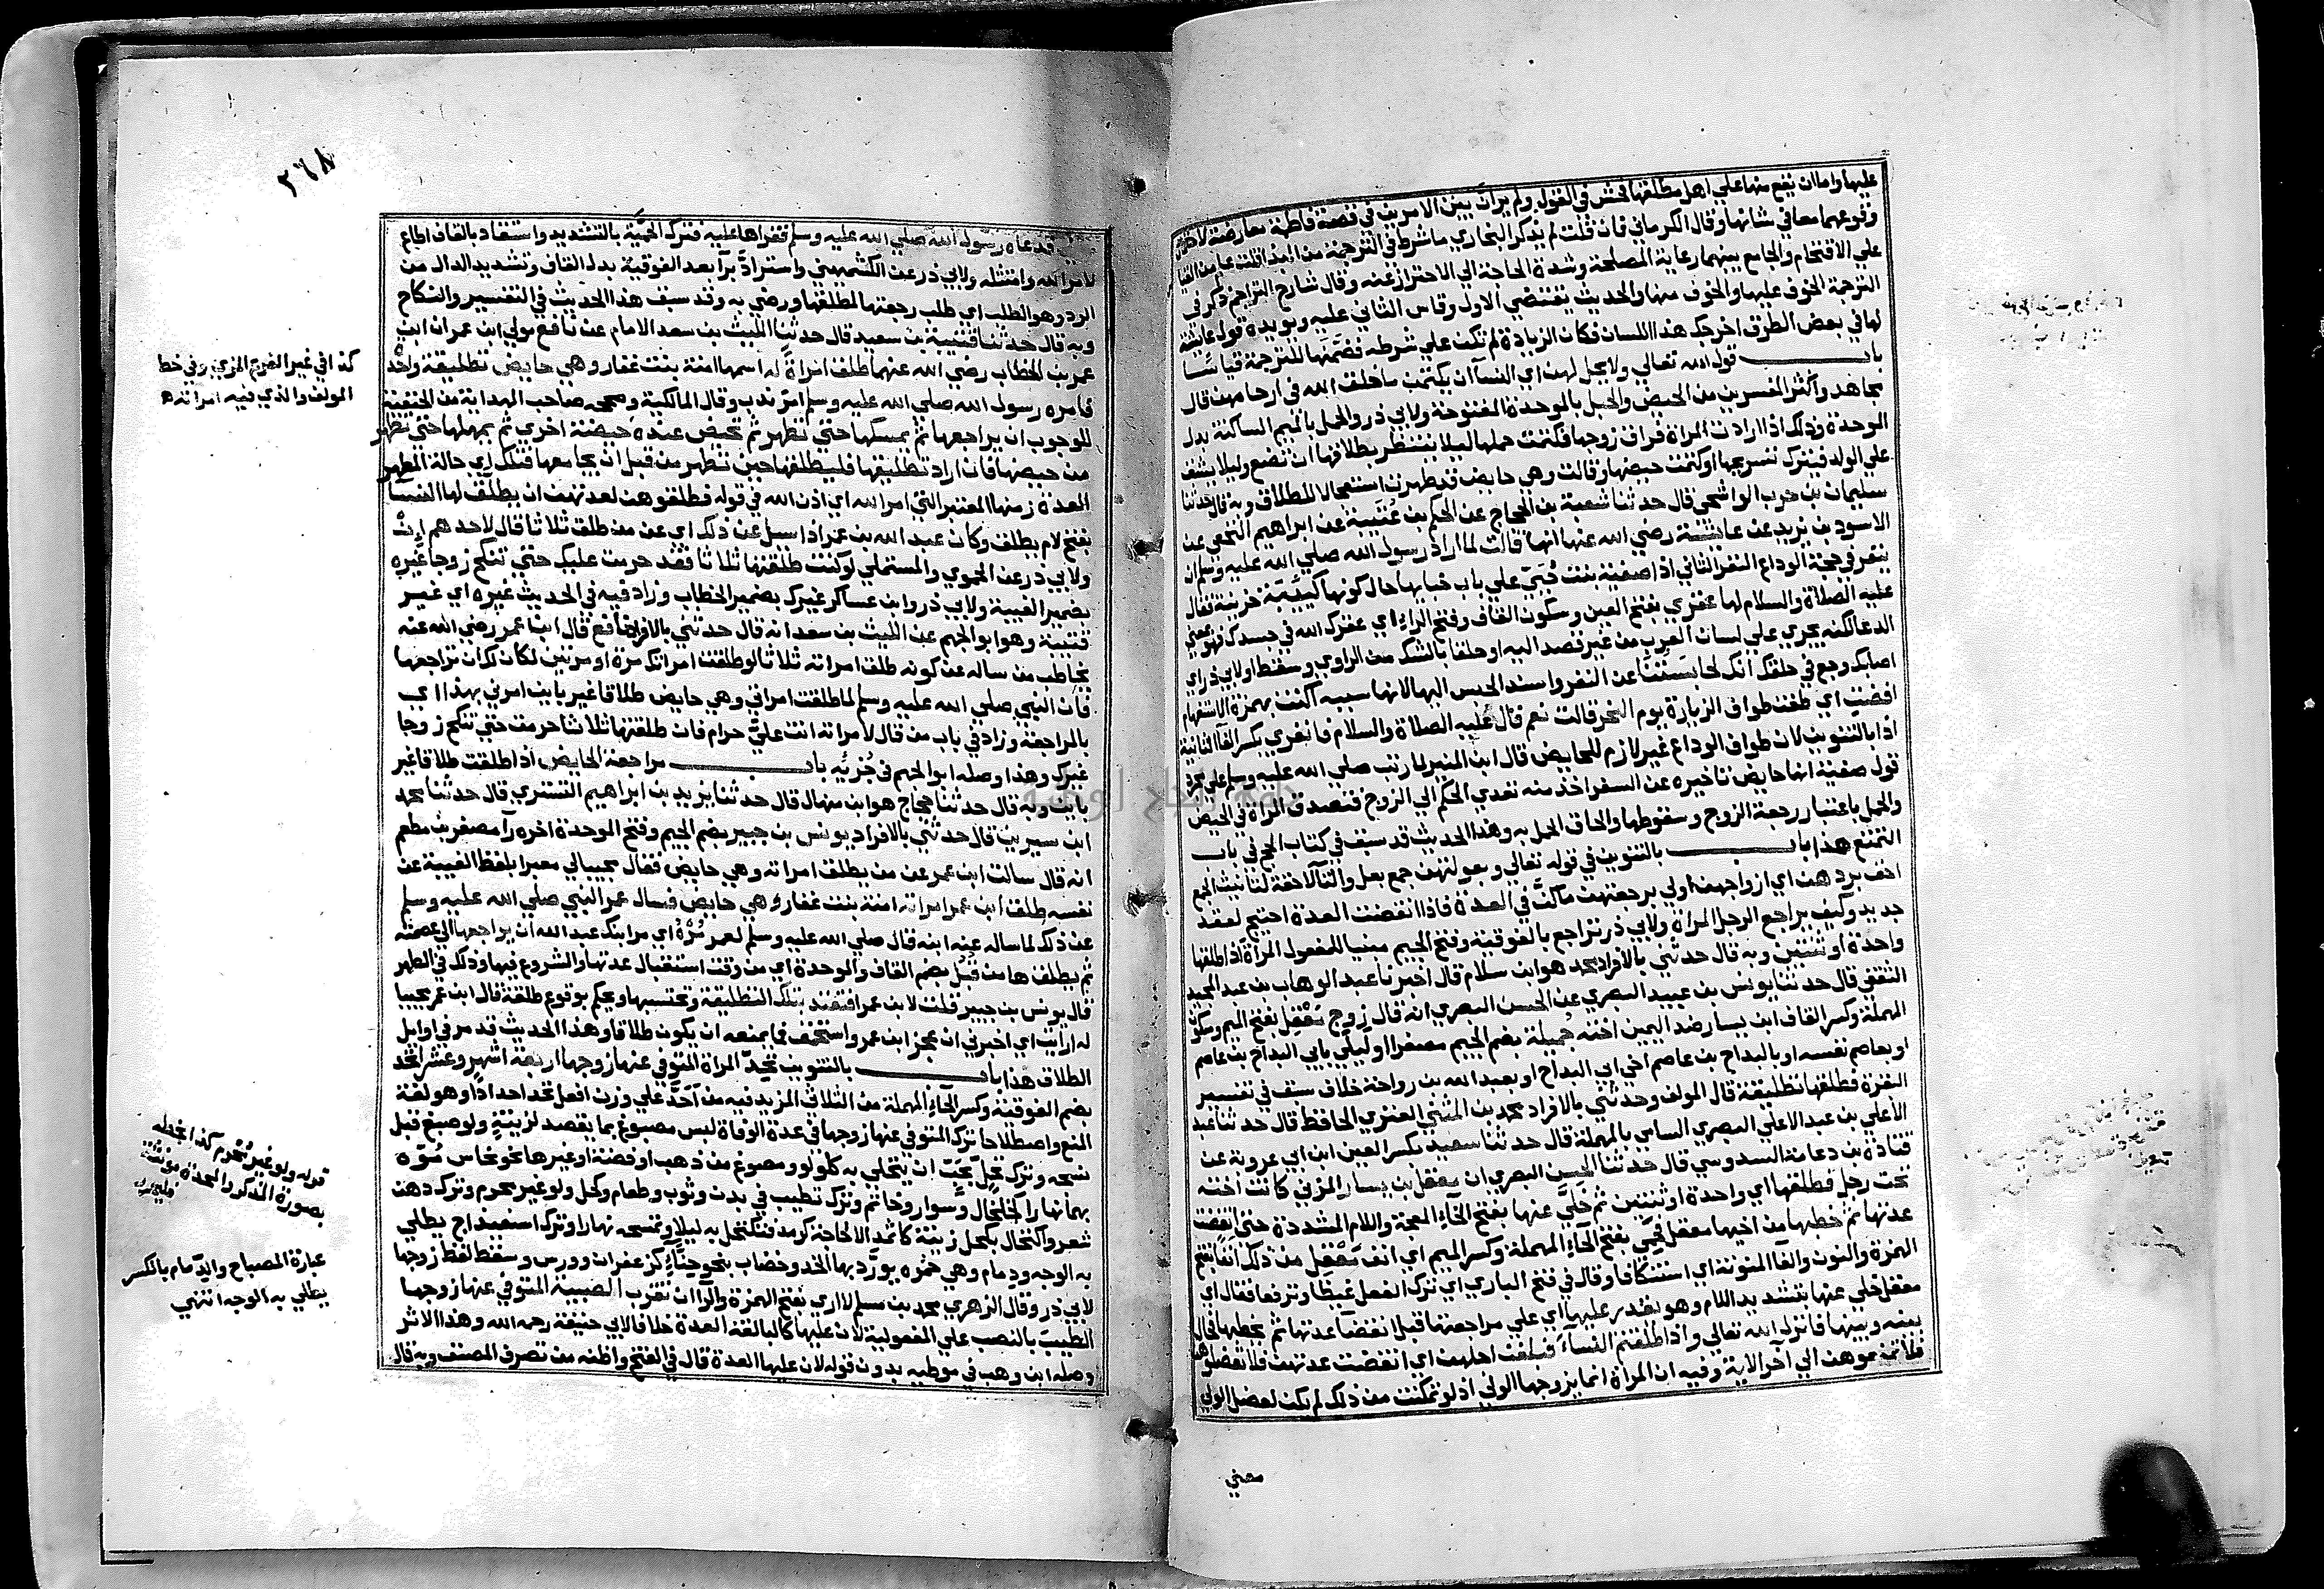 عليها واما ان يقع منها على اهل مطلقها فحش في القول ولم يرأت بين الامرين في قصة فاطمة معارضة لاحتمال
وقوعهما معا في شانها وقال الكرماني فان قلت لم يذكر البخاري ما شرط في الترجمة من البذا قلت علم من القياس
علي الاقتحام والجامع بينهما رعاية المصلحة وشدة الحاجة الي الاحتراز عنه وقال شارح التراجم ذكر في
الترجمة الخوف عليها والخوف منها والحديث يقتضي الاول وقاس الثاني عليه ويويده قول عايشة
لها في بعض الطرق اخرجك هذا اللسان فكان الزيادة لم تكن علي شرطه فضمنها للترجمة قياسا
باب قول الله تعالي ولا يحل لهن اي النسآ ان يكتمن ما خلق الله في ارحامهن قال
مجاهد واكثر المفسرين من الحيض والحبل بالموحدة المفتوحة ولابي ذر والحمل بالميم الساكنة بدل
الموحدة وذلك اذا ارادت المراة فراق زوجها فكتمت حملها ليلا ينتظر بطلاقها ان تضع وليلا يشفق
علي الولد فيترك تسريحها او كتمت حيضها وقالت وهي حايض قد طهرت استعجالا للطلاق وبه قال حدثنا
سليمان بن حرب الواشحي قال حدثنا شعبة بن الحجاج عن الحكم بن عتيبة عن ابراهيم النخعي عن
الاسود بن يزيد عن عايشة رضي الله عنها انها قالت لما اراد رسول الله صلي الله عليه وسلم ان
ينفر في حجة الوداع النفر الثاني اذا صفية بنت حيي علي باب خبايها حال كونها كييبة حزينة فقال
عليه الصلاة والسلام لها عقري بفتح العين وسكون القاف وفتح الراء اي عقرك الله في جسدك فهو بمعني
الدعا لكنه يجري علي لسان العرب من غير قصد اليه او حلقا بالشك من الراوي وسقط او لابي ذر اي
اصابك وجع في حلقك انك لحابستنا عن النفر واسند الحبس اليها لانها سببه اكنت بهمزة الاستفهام
افضت اي طفت طواف الزيارة يوم النحر قالت نعم قال عليه الصلاة والسلام فانفري بكسر الفآ الثانية
اذا بالتنوين لان طواف الوداع غير لازم للحايض قال ابن المنير لما رتب صلي الله عليه وسلم علي مجرد
قول صفية انها حايض تاخيره عن السفر اخذ منه تعدي الحكم الي الزوج فتصدق المراة في الحيض
والحمل باعتبار رجعة الزوج وسقوطها والحاق الحمل به وهذا الحديث قد سبق في كتاب الحج في باب
التمتع هذا باب بالتنوين في قوله تعالي وبعولتهن جمع بعل والتآ لاحقة لتانيث الجمع
احق بردهن اي ازواجهن اولي برجعتهن ما كن في العدة فاذا انقضت العدة احتيج لعقد
جديد وكيف يراجع الرجل المراة ولابي ذر تراجع بالفوقية وفتح الجيم مبنيا للمفعول المراة اذا طلقها
واحدة او ثنتين وبه قال حدثني بالافراد محمد هو ابن سلام قال اخبرنا عبد الوهاب بن عبد المجيد
الثقفي قال حدثنا يونس بن عبيد البصري عن الحسن البصري انه قال زوج معقل بفتح الميم وسكون
المهملة وكسر القاف ابن يسار ضد اليمين اخته جميلة بضم الجيم مصغرا او ليلي بابي البداح بن عاصم
او بعاصم نفسه او بالبداح بن عاصم اخي ابي البداح او بعبد الله بن رواحة خلاف سبق في تفسير
البقرة فطلقها تطليقة قال المولف وحدثني بالافراد محمد بن المثني العنزي الحافظ قال حدثنا عبد
الاعلي بن عبد الاعلي البصري السامي بالمهملة قال حدثنا سعيد بكسر العين ابن ابي عروبة عن
قتادة بن دعامة السدوسي قال حدثنا الحسن البصري ان معقل بن يسار المزني كانت اخته
تحت رجل فطلقها اي واحدة او ثنتين ثم خلي عنها بفتح الخآء المعجمة واللام المشددة حتي انقضت
عدتها ثم خطبها من اخيها معقل فحمي بفتح الحآء المهملة وكسر الميم اي انف معقل من ذلك انفا بفتح
الهمزة والنون والفا المنونة اي استنكافا وقال في فتح الباري اي ترك الفعل غيظا وترفعا فقال اي
معقل خلي عنها بتشديد اللام وهو يقدر عليها اي علي مراجعتها قبل انقضآ عدتها ثم يخطبها فحال
بينه وبينها فانزل الله تعالي واذا طلقتم النسآء فبلغن اجلهن اي انقضت عدتهن فلا تعضلوهن
فلا تمنعوهن الي اخر الاية وفيه ان المراة انما يزوجها الولي اذ لو تمكنت من ذلك لم يكن لعضل الولي
معني
٢٦٨
فدعاه رسول الله صلي الله عليه وسلم فقراها عليه فترك الحمية بالتشديد واستقاد بالقاف اطاع
لامر الله وامتثله ولابي ذر عن الكشميهني واستراد برآ بعد الفوقية بدل القاف وتشديد الدال من
الرد وهو الطلب اي طلب رجعتها لمطلقها ورضي به وقد سبق هذا الحديث في التفسير والنكاح
وبه قال حدثنا قتيبة بن سعيد قال حدثنا الليث بن سعد الامام عن نافع مولي ابن عمر ان ابن
عمر بن الخطاب رضي الله عنهما طلق امراة له اسمها امنة بنت غفار وهي حايض تطليقة واحدة
فامره رسول الله صلي الله عليه وسلم امر ندب وقال المالكية وصححه صاحب الهداية من الحنفية
للوجوب ان يراجعها ثم يمسكها حتي تطهر ثم تحيض عنده حيضة اخري ثم يمهلها حتي تطهر
من حيضها فان اراد تطليقها فليطلقها حين تطهر من قبل ان يجامعها فتلك اي حالة الطهر
العدة زمنها المعتبر التي امر الله اي اذن الله في قوله فطلقوهن لعدتهن ان يطلق لها النسآ
بفتح لام يطلق وكان عبد الله بن عمر اذا سيل عن ذلك اي عن من طلق ثلاثا قال لاحدهم ان
ولابي ذر عن الحموي والمستملي لو كنت طلقتها ثلاثا فقد حرمت عليك حتي تنكح زوجا غيره
بضمير الغيبة ولابي ذر وابن عساكر غيرك بضمير الخطاب وزاد فيه في الحديث غيره اي غير
قتيبة وهو ابو الجهم عن الليث بن سعد انه قال حدثني بالافراد نافع قال ابن عمر رضي الله عنه
يخاطب من ساله عن كونه طلق امراته ثلاثا لو طلقت امراتك مرة او مرتين لكان لك ان تراجعها
فان النبي صلي الله عليه وسلم لما طلقت امراتي وهي حايض طلاقا غير باين امرني بهذا اي
بالمراجعة وزاد في باب من قال لامراته انت علي حرام فان طلقتها ثلاثا حرمت حتي تنكح زوجا
غيرك وهذا وصله ابو الجهم في جزئه باب مراجعة الحايض اذا طلقت طلاقا غير
باين وبه قال حدثنا حجاج هو ابن منهال قال حدثنا يزيد بن ابراهيم التستري قال حدثنا محمد
ابن سيرين قال حدثني بالافراد يونس بن جبير بضم الجيم وفتح الموحدة اخره رآ مصغر بن مطعم
انه قال سالت ابن عمر عن من يطلق امراته وهي حايض فقال مجيبا لي معبرا بلفظ الغيبة عن
نفسه طلق ابن عمر امراته امنة بنت غفار وهي حايض فسال عمر النبي صلي الله عليه وسلم
عن ذلك لما ساله عنه ابنه قال صلي الله عليه وسلم لعمر مره اي مر ابنك عبد الله ان يراجعها الي عصمته
ثم يطلقها من قبل بضم القاف والموحدة اي من وقت استقبال عدتها والشروع فيها وذلك في الطهر
قال يونس بن جبير قلت لابن عمر افتعتد بتلك التطليقة وتحتسبها ويحكم بوقوع طلقة قال ابن عمر مجيبا
له ارايت اي اخبرني ان عجز ابن عمر واستحمق فما يمنعه ان يكون طلاقا وهذا الحديث قد مر في اوايل
الطلاق هذا باب بالتنوين تحد المراة المتوفي عنها زوجها اربعة اشهر وعشرا تحد
بضم الفوقية وكسر الحآء المهملة من الثلاثي المزيد فيه من احد علي وزن افعل تحد احدادا وهو لغة
المنع واصطلاحا ترك المتوفي عنها زوجها في عدة الوفاة لبس مصبوغ بما يقصد لزينة ولو صبغ قبل
نسجه وترك تحل بحب ان يتحلي به كلولو ومصوغ من ذهب او فضة او غيرها نحو نحاس مموه
بهما نهارا كخلخال وسوار وخاتم وترك تطيب في بدن وثوب وطعام وكحل ولو غير محرم وترك دهن
شعر واكتحال بكحل زينة كاثمد الا لحاجة كرمد فتكتحل به ليلا وتمسحه نهارا وترك اسفيذاج يطلي
به الوجه ودمام وهي حمره يورد بها الخد وخضاب بنحو حناء كزعفران وورس وسقط لفظ زوجها
لابي ذر وقال الزهري محمد بن مسلم لا اري بفتح الهمزة والرآ ان تقرب الصبية المتوفي عنها زوجها
الطيب بالنصب علي المفعولية لان عليها كالبالغة العدة خلافا لابي حنيفة رحمه الله وهذا الاثر
وصله ابن وهب في موطيه بدون قوله لان عليها العدة قال في الفتح واظنه من تصرف المصنف وبه قال
كذا في غير الفرع المزي وفي خط
المولف والذي فيه امراته ه
قوله ولو غير محرم كذا بخطه
بصورة المذكر والمحدة مونثة
عبارة المصباح والدمام بالكسر
يطلي به الوجه انتهي